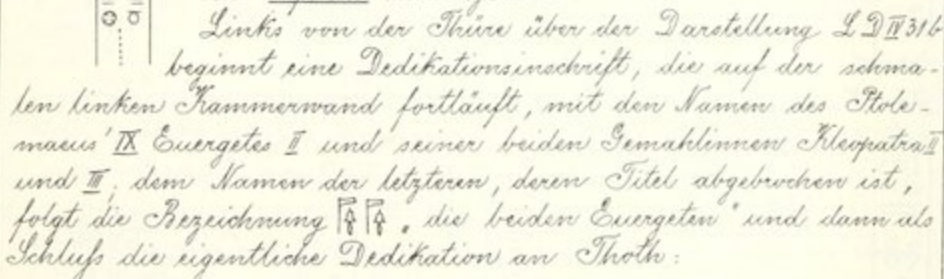 Links von der Thüre über der Darstellung L D IV 31b
beginnt eine Dedikationsinschrift, die auf der schma-
len linken Kammerwand fortläuft, mit den Namen des Ptole-
maeus' IX Euergetes II und seiner beiden Gemahlinnen Kleopatra II
und III; dem Namen der letzteren, deren Titel abgebrochen ist,
folgt die Bezeichnung 𓊹𓌢 𓊹𓌢 „die beiden Euergeten" und dann als
Schluſs die eigentliche Dedikation an Thoth: